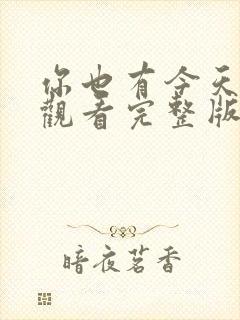 你也有今天
觀看完整版
暗夜茗香